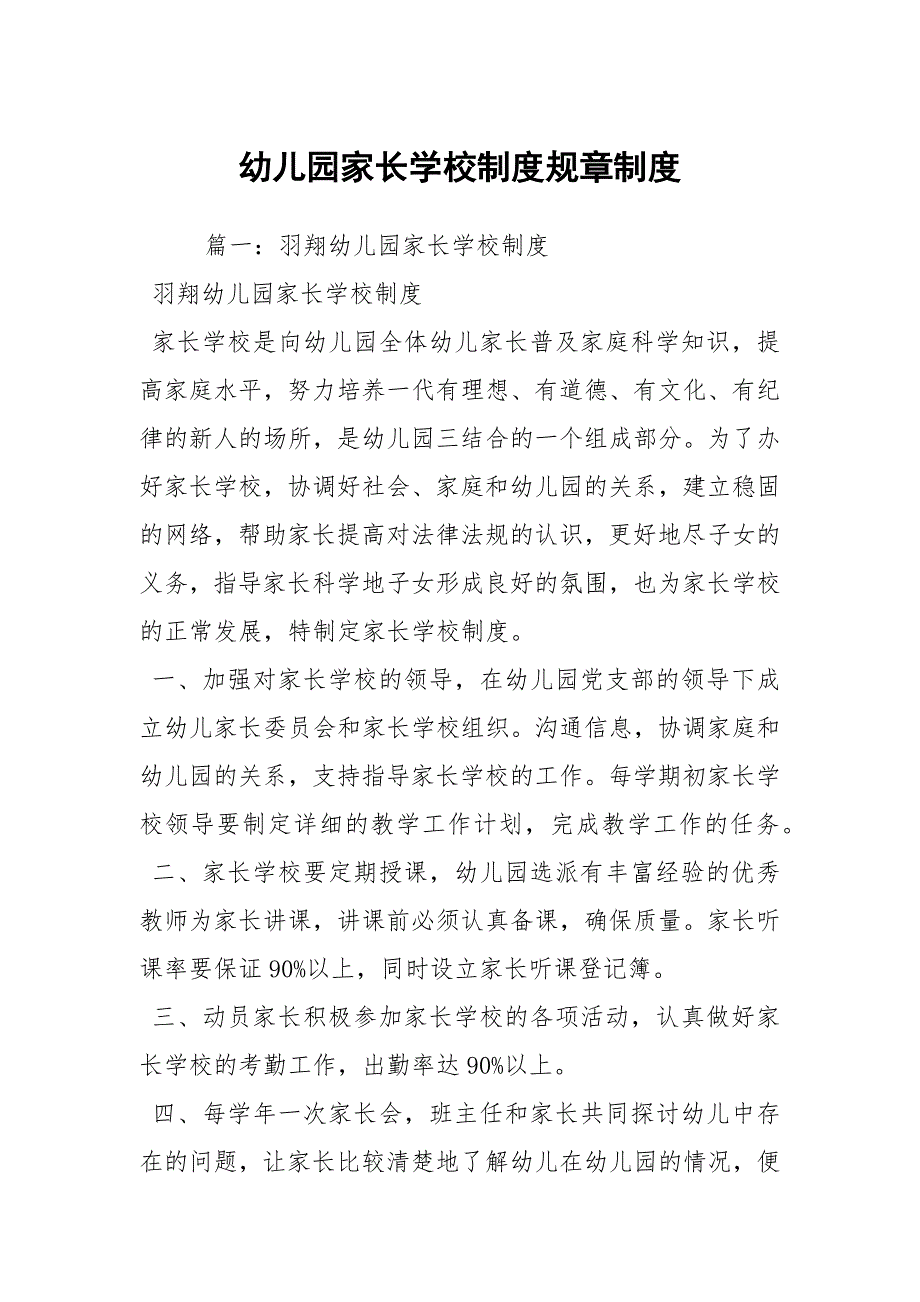 幼儿园家长学校制度规章制度
篇一：羽翔幼儿园家长学校制度
羽翔幼儿园家长学校制度
家长学校是向幼儿园全体幼儿家长普及家庭科学知识，提
高家庭水平，努力培养一代有理想、有道德、有文化、有纪
律的新人的场所，是幼儿园三结合的一个组成部分。为了办
好家长学校，协调好社会、家庭和幼儿园的关系，建立稳固
的网络，帮助家长提高对法律法规的认识，更好地尽子女的
义务，指导家长科学地子女形成良好的氛围，也为家长学校
的正常发展，特制定家长学校制度。
一、加强对家长学校的领导，在幼儿园党支部的领导下成
立幼儿家长委员会和家长学校组织。沟通信息，协调家庭和
幼儿园的关系，支持指导家长学校的工作。每学期初家长学
校领导要制定详细的教学工作计划，完成教学工作的任务。
二、家长学校要定期授课，幼儿园选派有丰富经验的优秀
教师为家长讲课，讲课前必须认真备课，确保质量。家长听
课率要保证 90%以上，同时设立家长听课登记簿。
三、动员家长积极参加家长学校的各项活动，认真做好家
长学校的考勤工作，出勤率达 90%以上。
四、每学年一次家长会，班主任和家长共同探讨幼儿中存
在的问题，让家长比较清楚地了解幼儿在幼儿园的情况，便